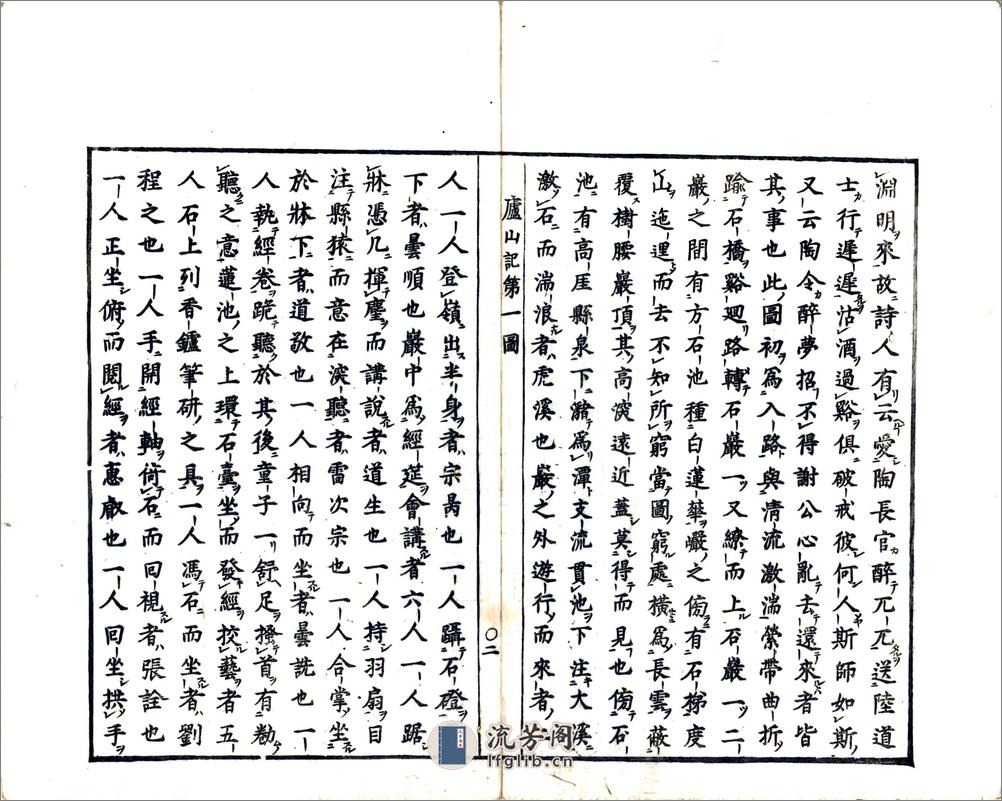 淵明來故詩人有云愛陶長官醉兀兀送陸道
士行遲遲沽酒過谿俱破戒彼何人斯師如斯
又云陶令醉夢招不得謝公心亂去還來者皆
其事也此圖初爲入路與清流激湍縈帶曲折
踰石橋谿迴路轉石巖一又繚而上石巖一二
巖之間有方石池種白蓮華巖之傍有石梯度
山迤邐而去不知所窮當圖窮處橫爲長雲蔽
覆樹腰巖頂其高深遠近蓋莫得而見也傍石
池有高厓縣泉下瀦爲潭支流貫池下注大溪
激石而湍浪者虎溪也巖之外遊行而來者一
廬山記第一圖
〇二
人一人登嶺出半身者宗昺也一人躡石磴
下者曇順也巖中爲經筵會講者六人一人踞
牀憑几揮麈而講說者道生也一人持羽扇目
注縣猿而意在深聽者雷次宗也一人合掌坐
於牀下者道敬也一人相向而坐者曇詵也一
人執經卷跪聽於其後童子一舒足搔首有勌
聽之意蓮池之上環石臺坐而發經挍藝者五
人石上列香鑪筆研之具一人馮石而坐者劉
程之也一人手開經軸倚石而回視者張詮也
一人正坐俯而閱經者惠叡也一人回坐拱手
流芳阁
lfglib.cn